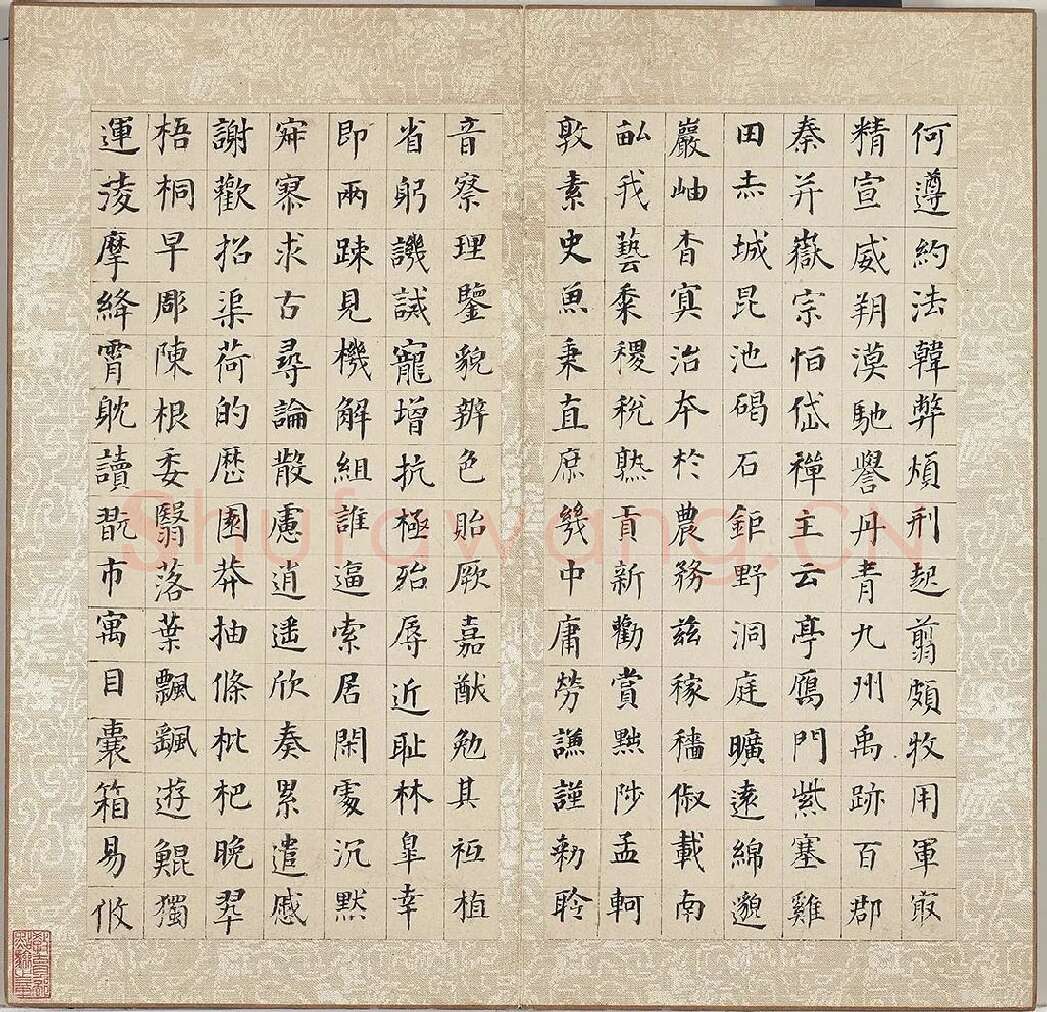 何遵約法韓弊煩刑起翦頗牧用軍冣
精宣威朔漠馳譽丹青九州禹跡百郡
秦并嶽宗恒岱禪主云亭鴈門紫塞雞
田赤城昆池碣石鉅野洞庭曠遠綿邈
巖岫杳冥治本於農務茲稼穡俶載南
畝我藝黍稷稅熟貢新勸賞黜陟孟軻
敦素史魚秉直庶幾中庸勞謙謹勑聆
音察理鑒貌辨色貽厥嘉猷勉其祗植
省躬譏誡寵增抗極殆辱近耻林皐幸
即兩踈見機解組誰逼索居閑處沉默
寂寥求古尋論散慮逍遙欣奏累遣慼
謝歡招渠荷的歷園莽抽條枇杷晚翠
梧桐早彫陳根委翳落葉飄颻遊鯤獨
運淩摩絳霄耽讀翫市寓目囊箱易攸
Shufawang.cn